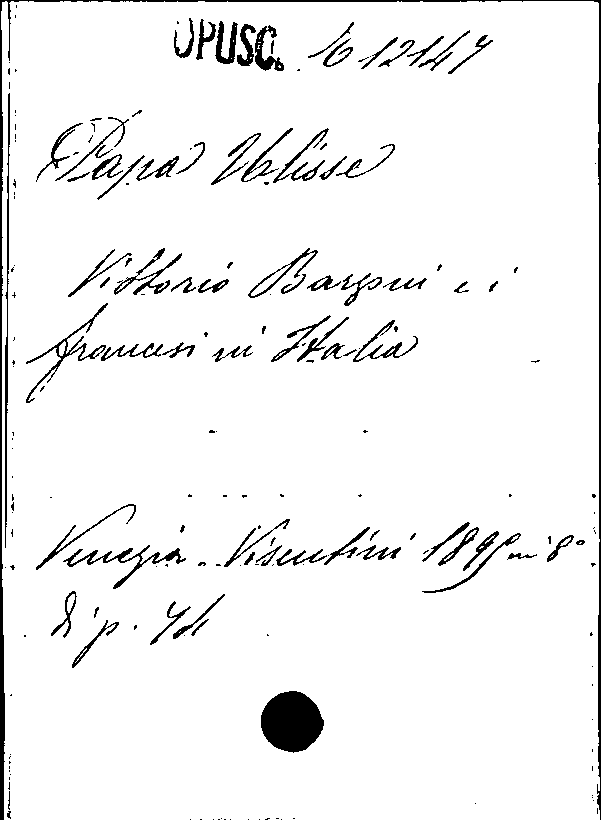 OPUSC. E 12147
Papa Ulisse
Vittorio Barzoni e i
francesi in Italia
Venezia. Visentini 1895 in 8°
di p. 74